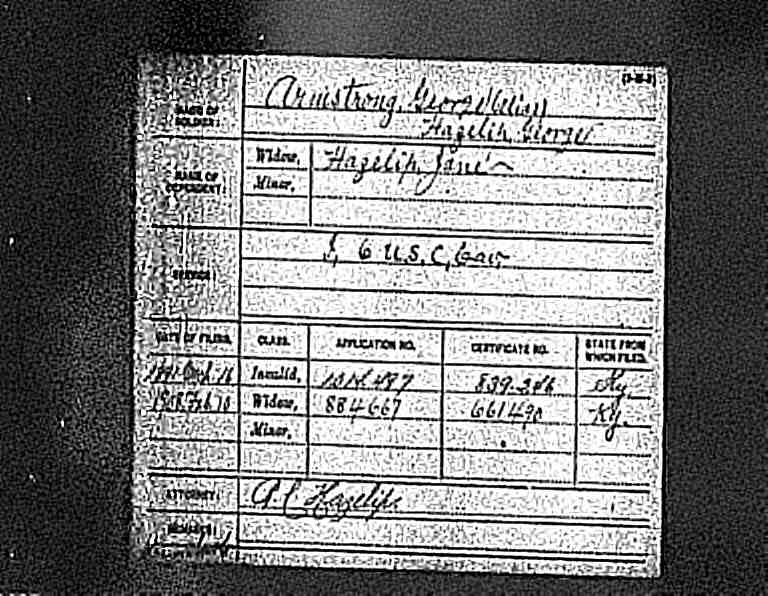 (3-
NAME OF SOLDIER: Armstrong, George
Hazelip, George
NAME OF DEPENDENT: Widow, Hazelip, Jane
Minor,
SERVICE: I, 6 U.S.C. Cav
DATE OF FILING. CLASS. APPLICATION NO. CERTIFICATE NO. STATE FROM WHICH FILED.
Invalid, Ky.
Widow, 884667 661490 Ky.
Minor,
ATTORNEY: Hazelip
REMARKS: